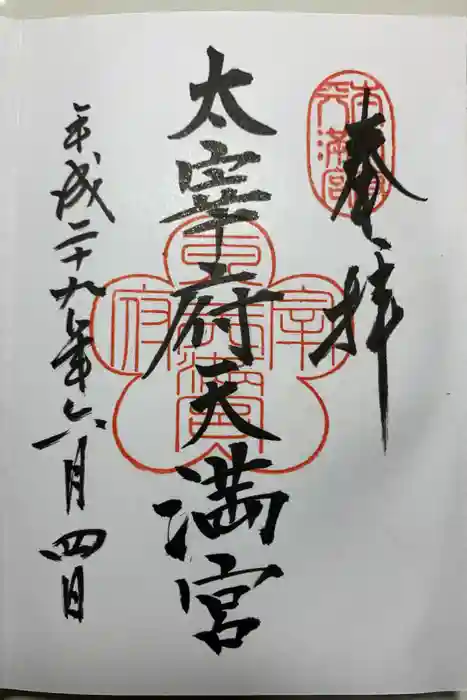 奉拝
太宰府天満宮
平成二十九年六月四日